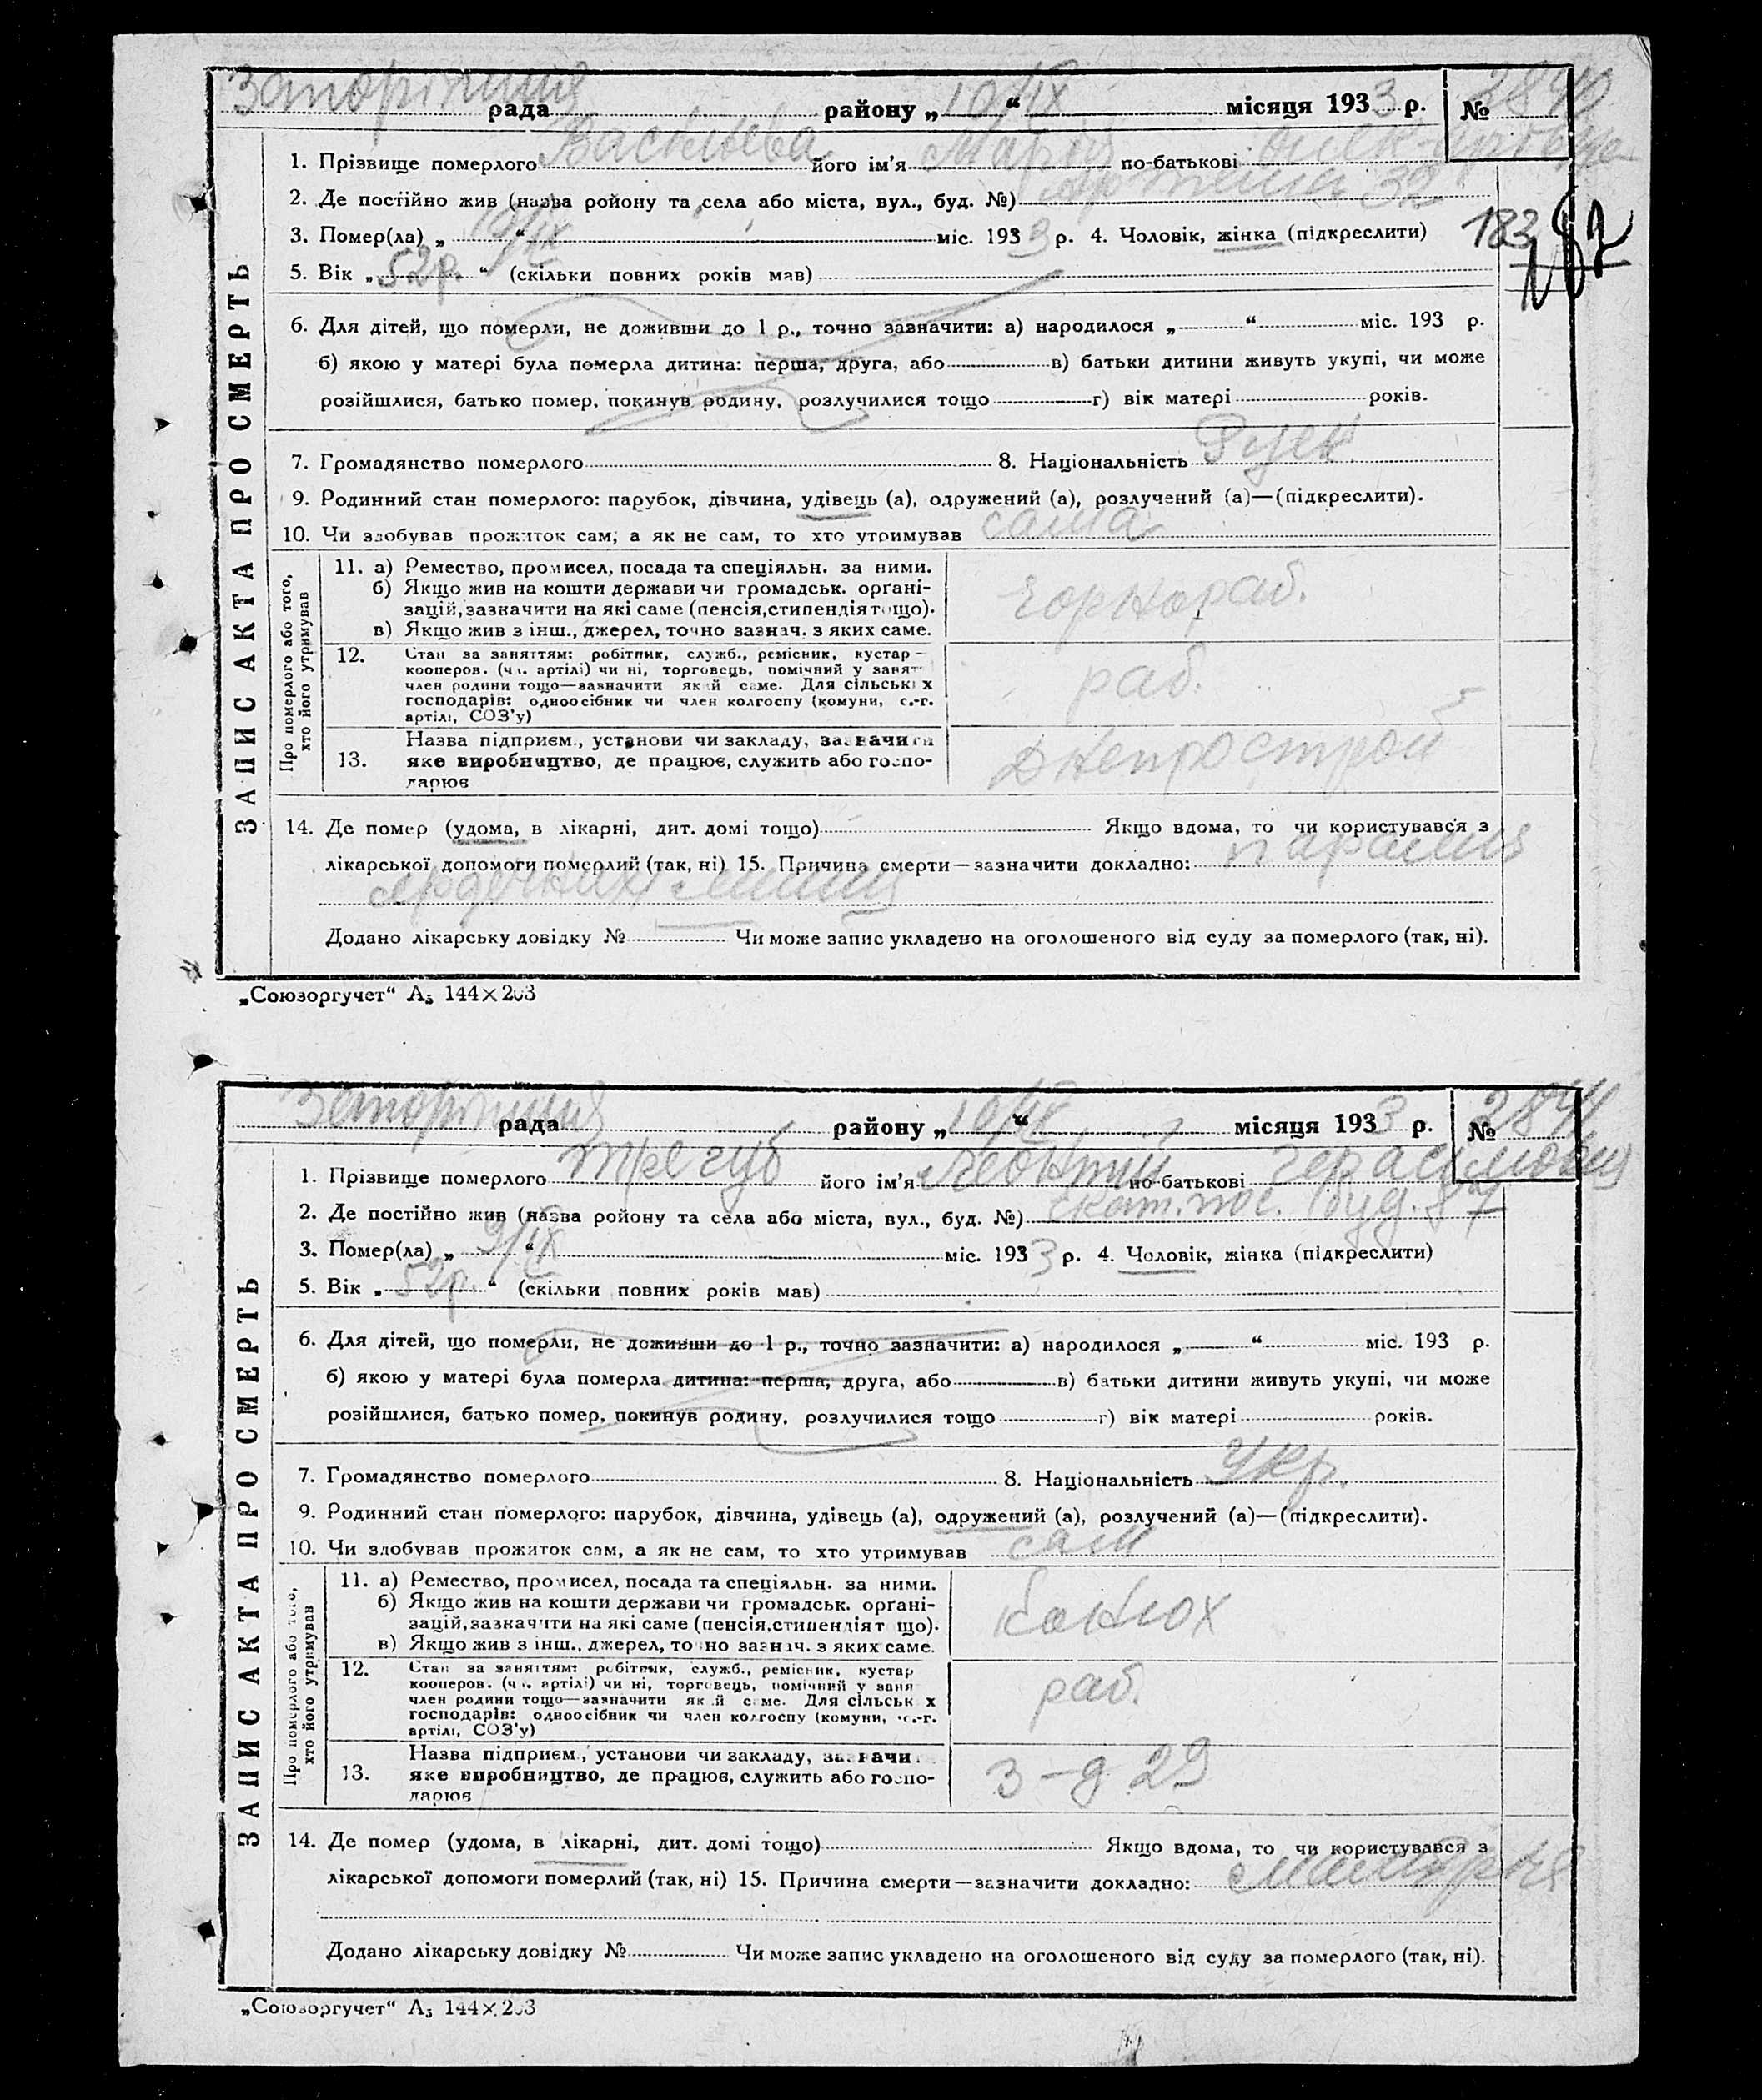 Запоріжжя рада району „10/IX“ місяця 1933 р. № 2840
1. Прізвище померлого Васильева його ім'я Марія по-батькові
2. Де постійно жив (назва ройону та села або міста, вул., буд. №) 32
3. Помер(ла) „10/IX“ міс. 1933 р. 4. Чоловік, жінка (підкреслити)
183
182
5. Вік „52р.“ (скільки повних років мав)
6. Для дітей, що померли, не доживши до 1 р., точно зазначити: а) народилося „ “ міс. 193 р.
б) якою у матері була померла дитина: перша, друга, або в) батьки дитини живуть укупі, чи може
розійшлися, батько помер, покинув родину, розлучилися тощо г) вік матері років.
7. Громадянство померлого 8. Національність Руск.
9. Родинний стан померлого: парубок, дівчина, удівець (а), одружений (а), розлучений (а)—(підкреслити).
10. Чи здобував прожиток сам, а як не сам, то хто утримував сама
ЗАПИС АКТА ПРО СМЕРТЬ
Про померлого або того, хто його утримував
11. а) Ремество, промисел, посада та спеціяльн. за ними.
б) Якщо жив на кошти держави чи громадськ. орґані-
зацій, зазначити на які саме (пенсія, стипендія тощо).
в) Якщо жив з інш., джерел, точно зазнач. з яких саме.
Чорнораб.
12. Стан за заняттям: робітник, служб., ремісник, кустар—
кооперов. (чл. артілі) чи ні, торговець, помічний у занят
член родини тощо—зазначити який саме. Для сільських
господарів: одноосібник чи член колгоспу (комуни, с.-г.
артілі, СОЗ'у)
раб.
Назва підприєм., установи чи закладу, зазначити
13. яке виробництво, де працює, служить або госпо-
дарює
Днепрострой
14. Де помер (удома, в лікарні, дит. домі тощо) Якщо вдома, то чи користувався з
лікарської допомоги померлий (так, ні) 15. Причина смерти—зазначити докладно: параліч
Додано лікарську довідку № Чи може запис укладено на оголошеного від суду за померлого (так, ні).
„Союзоргучет“ А₅ 144×203
Запоріжжя рада району „10/IX“ місяця 1933 р. № 2841
1. Прізвище померлого Трегуб його ім'я Леонтій по-батькові Герасимович
2. Де постійно жив (назва ройону та села або міста, вул., буд. №) пос. буд. 87
3. Помер(ла) „9/IX“ міс. 1933 р. 4. Чоловік, жінка (підкреслити)
5. Вік „52р.“ (скільки повних років мав)
6. Для дітей, що померли, не доживши до 1 р., точно зазначити: а) народилося „ “ міс. 193 р.
б) якою у матері була померла дитина: перша, друга, або в) батьки дитини живуть укупі, чи може
розійшлися, батько помер, покинув родину, розлучилися тощо г) вік матері років.
7. Громадянство померлого 8. Національність Укр.
9. Родинний стан померлого: парубок, дівчина, удівець (а), одружений (а), розлучений (а)—(підкреслити).
10. Чи здобував прожиток сам, а як не сам, то хто утримував сам
ЗАПИС АКТА ПРО СМЕРТЬ
Про померлого або того, хто його утримував
11. а) Ремество, промисел, посада та спеціяльн. за ними.
б) Якщо жив на кошти держави чи громадськ. орґані-
зацій, зазначити на які саме (пенсія, стипендія тощо).
в) Якщо жив з інш., джерел, точно зазнач. з яких саме.
Конюх
12. Стан за заняттям: робітник, служб., ремісник, кустар
кооперов. (чл. артілі) чи ні, торговець, помічний у заня
член родини тощо—зазначити який саме. Для сільських
господарів: одноосібник чи член колгоспу (комуни, с.-г.
артілі, СОЗ'у)
раб.
Назва підприєм., установи чи закладу, зазначи
13. яке виробництво, де працює, служить або госпо-
дарює
З-д 29
14. Де помер (удома, в лікарні, дит. домі тощо) Якщо вдома, то чи користувався з
лікарської допомоги померлий (так, ні) 15. Причина смерти—зазначити докладно: малярия
Додано лікарську довідку № Чи може запис укладено на оголошеного від суду за померлого (так, ні).
„Союзоргучет“ А₅ 144×203